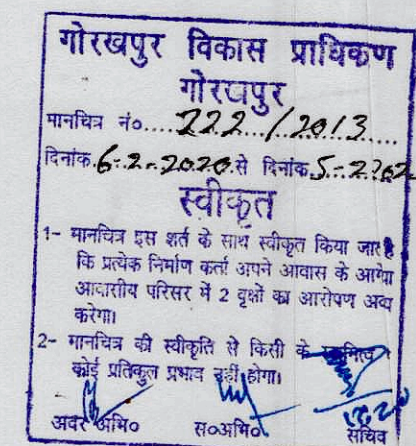 गोरखपुर विकास प्राधिकण
गोरखपुर
मानचित्र नं०.....222../2013.....
दिनांक.6-2-2020.से दिनांक.5-2-202
स्वीकृत
1- मानचित्र इस शर्त के साथ स्वीकृत किया जार है
कि प्रत्येक निर्माण कर्ता अपने आवास के आगे
आवासीय परिसर में 2 वृक्षों का आरोपण अव्य
करेगा।
2- मानचित्र की स्वीकृति से किसी के
कोई प्रतिकुल प्रभाव नहीं होगा।
अवर अभि० स०अभि० सचिव